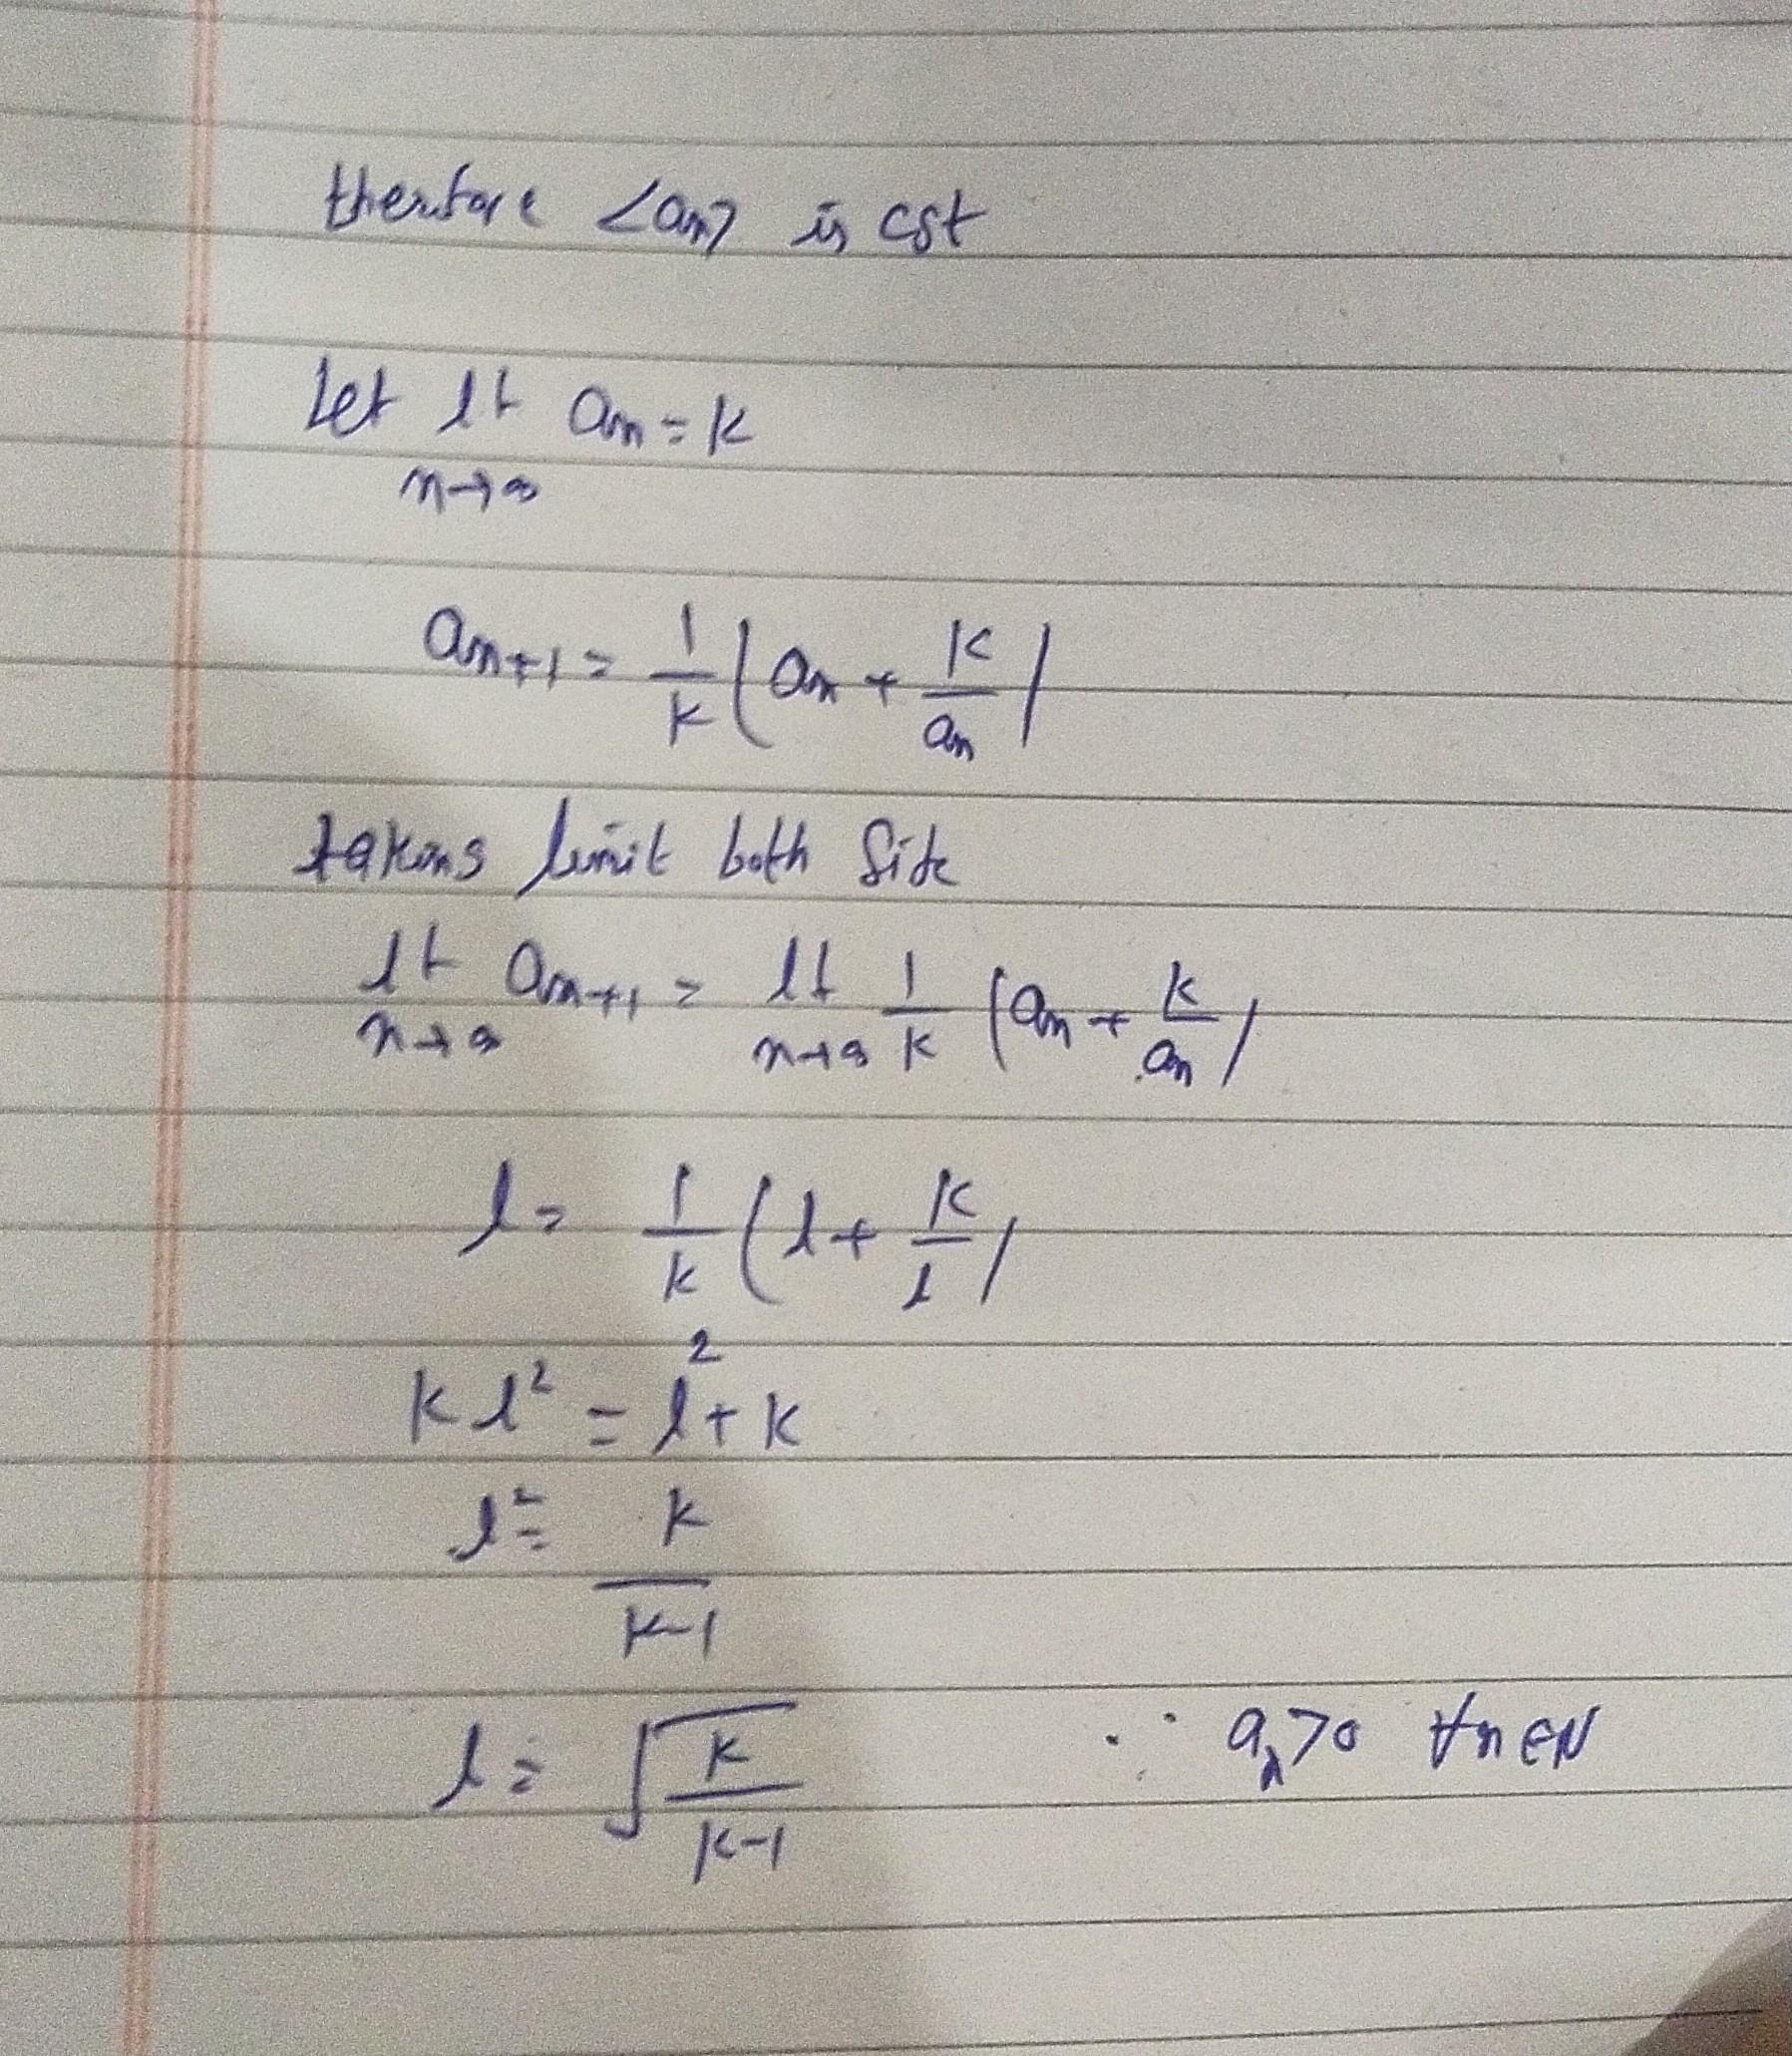 therefore <an> is cgt
Let lt an = k
n→∞
an+1 = 1/k (an + k/an)
taking limit both side
lt n→∞ an+1 = lt n→∞ 1/k (an + k/an)
l = 1/k (l + k/l)
k l² = l² + k
l² = k/(k-1)
l = √(k/(k-1)) ∵ an>0 ∀n∈N